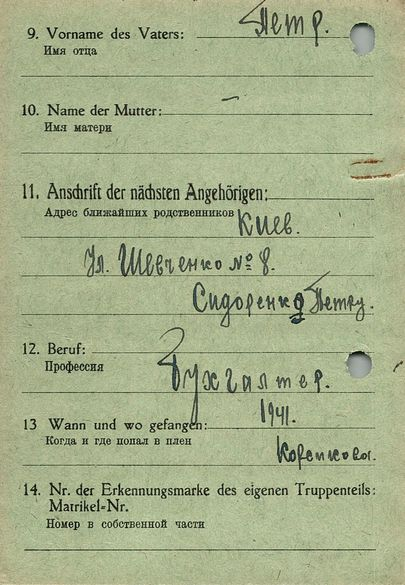 9. Vorname des Vaters: Петр.
Имя отца
10. Name der Mutter: –
Имя матери
11. Anschrift der nächsten Angehörigen:
Адрес ближайших родственников Киев.
Ул. Шевченко № 8.
Сидоренко Петру.
12. Beruf:
Профессия Бухгалтер.
13 Wann und wo gefangen: 1941.
Когда и где попал в плен
14. Nr. der Erkennungsmarke des eigenen Truppenteils:
Matrikel-Nr.
Номер в собственной части